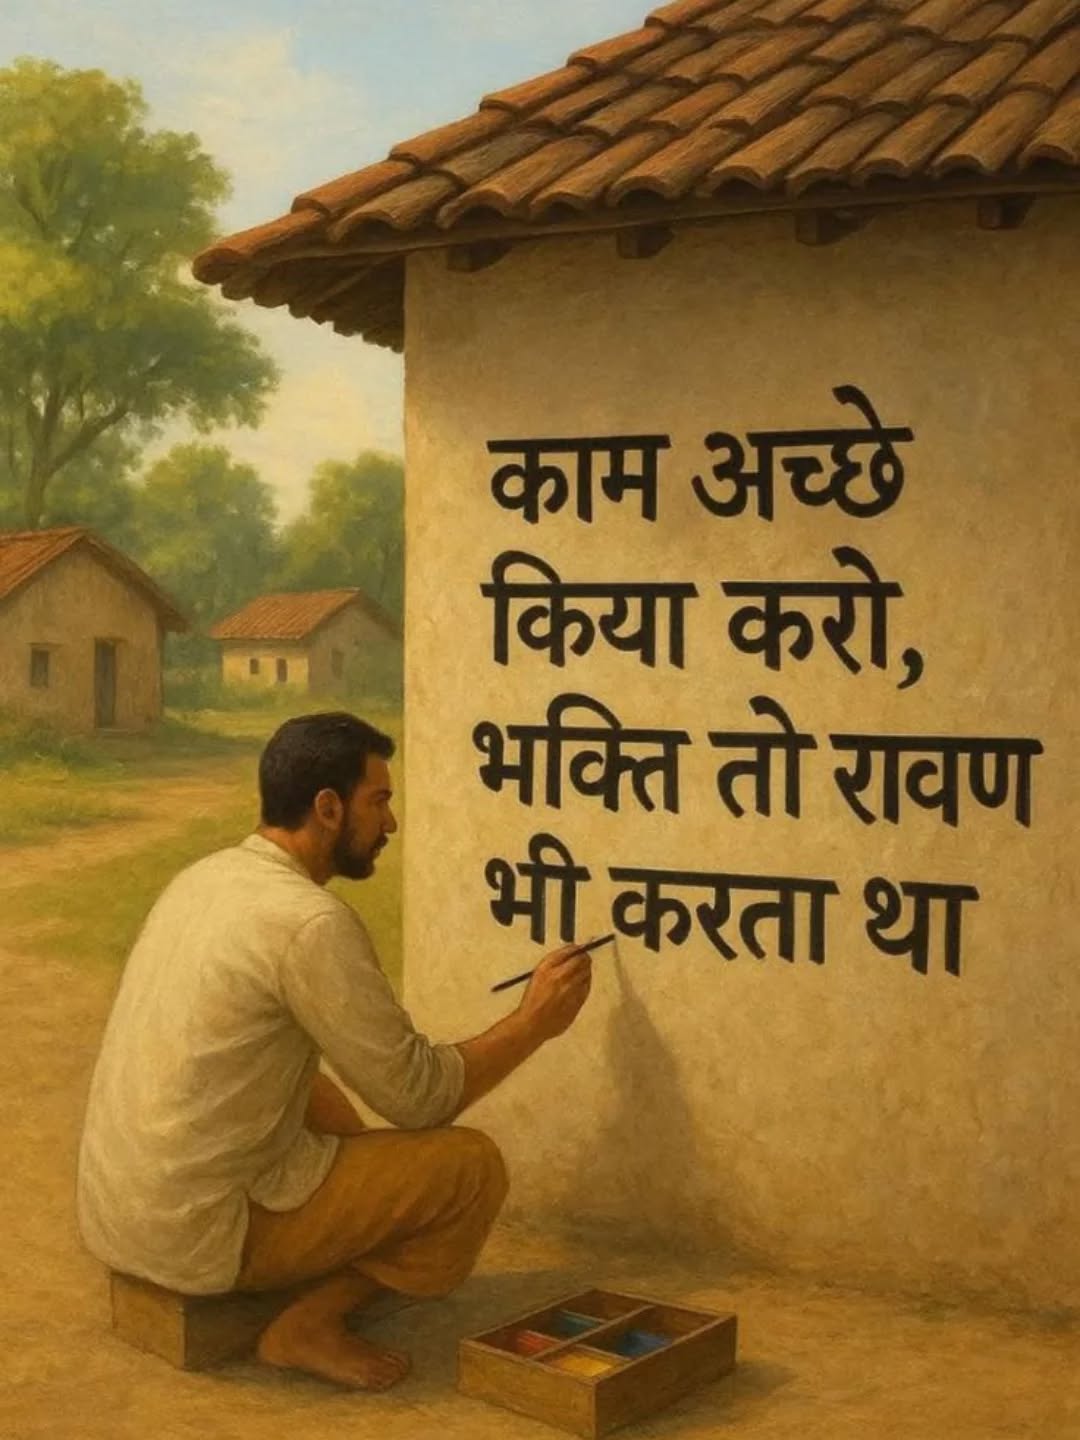 काम अच्छे
किया करो,
भक्ति तो रावण
भी करता था